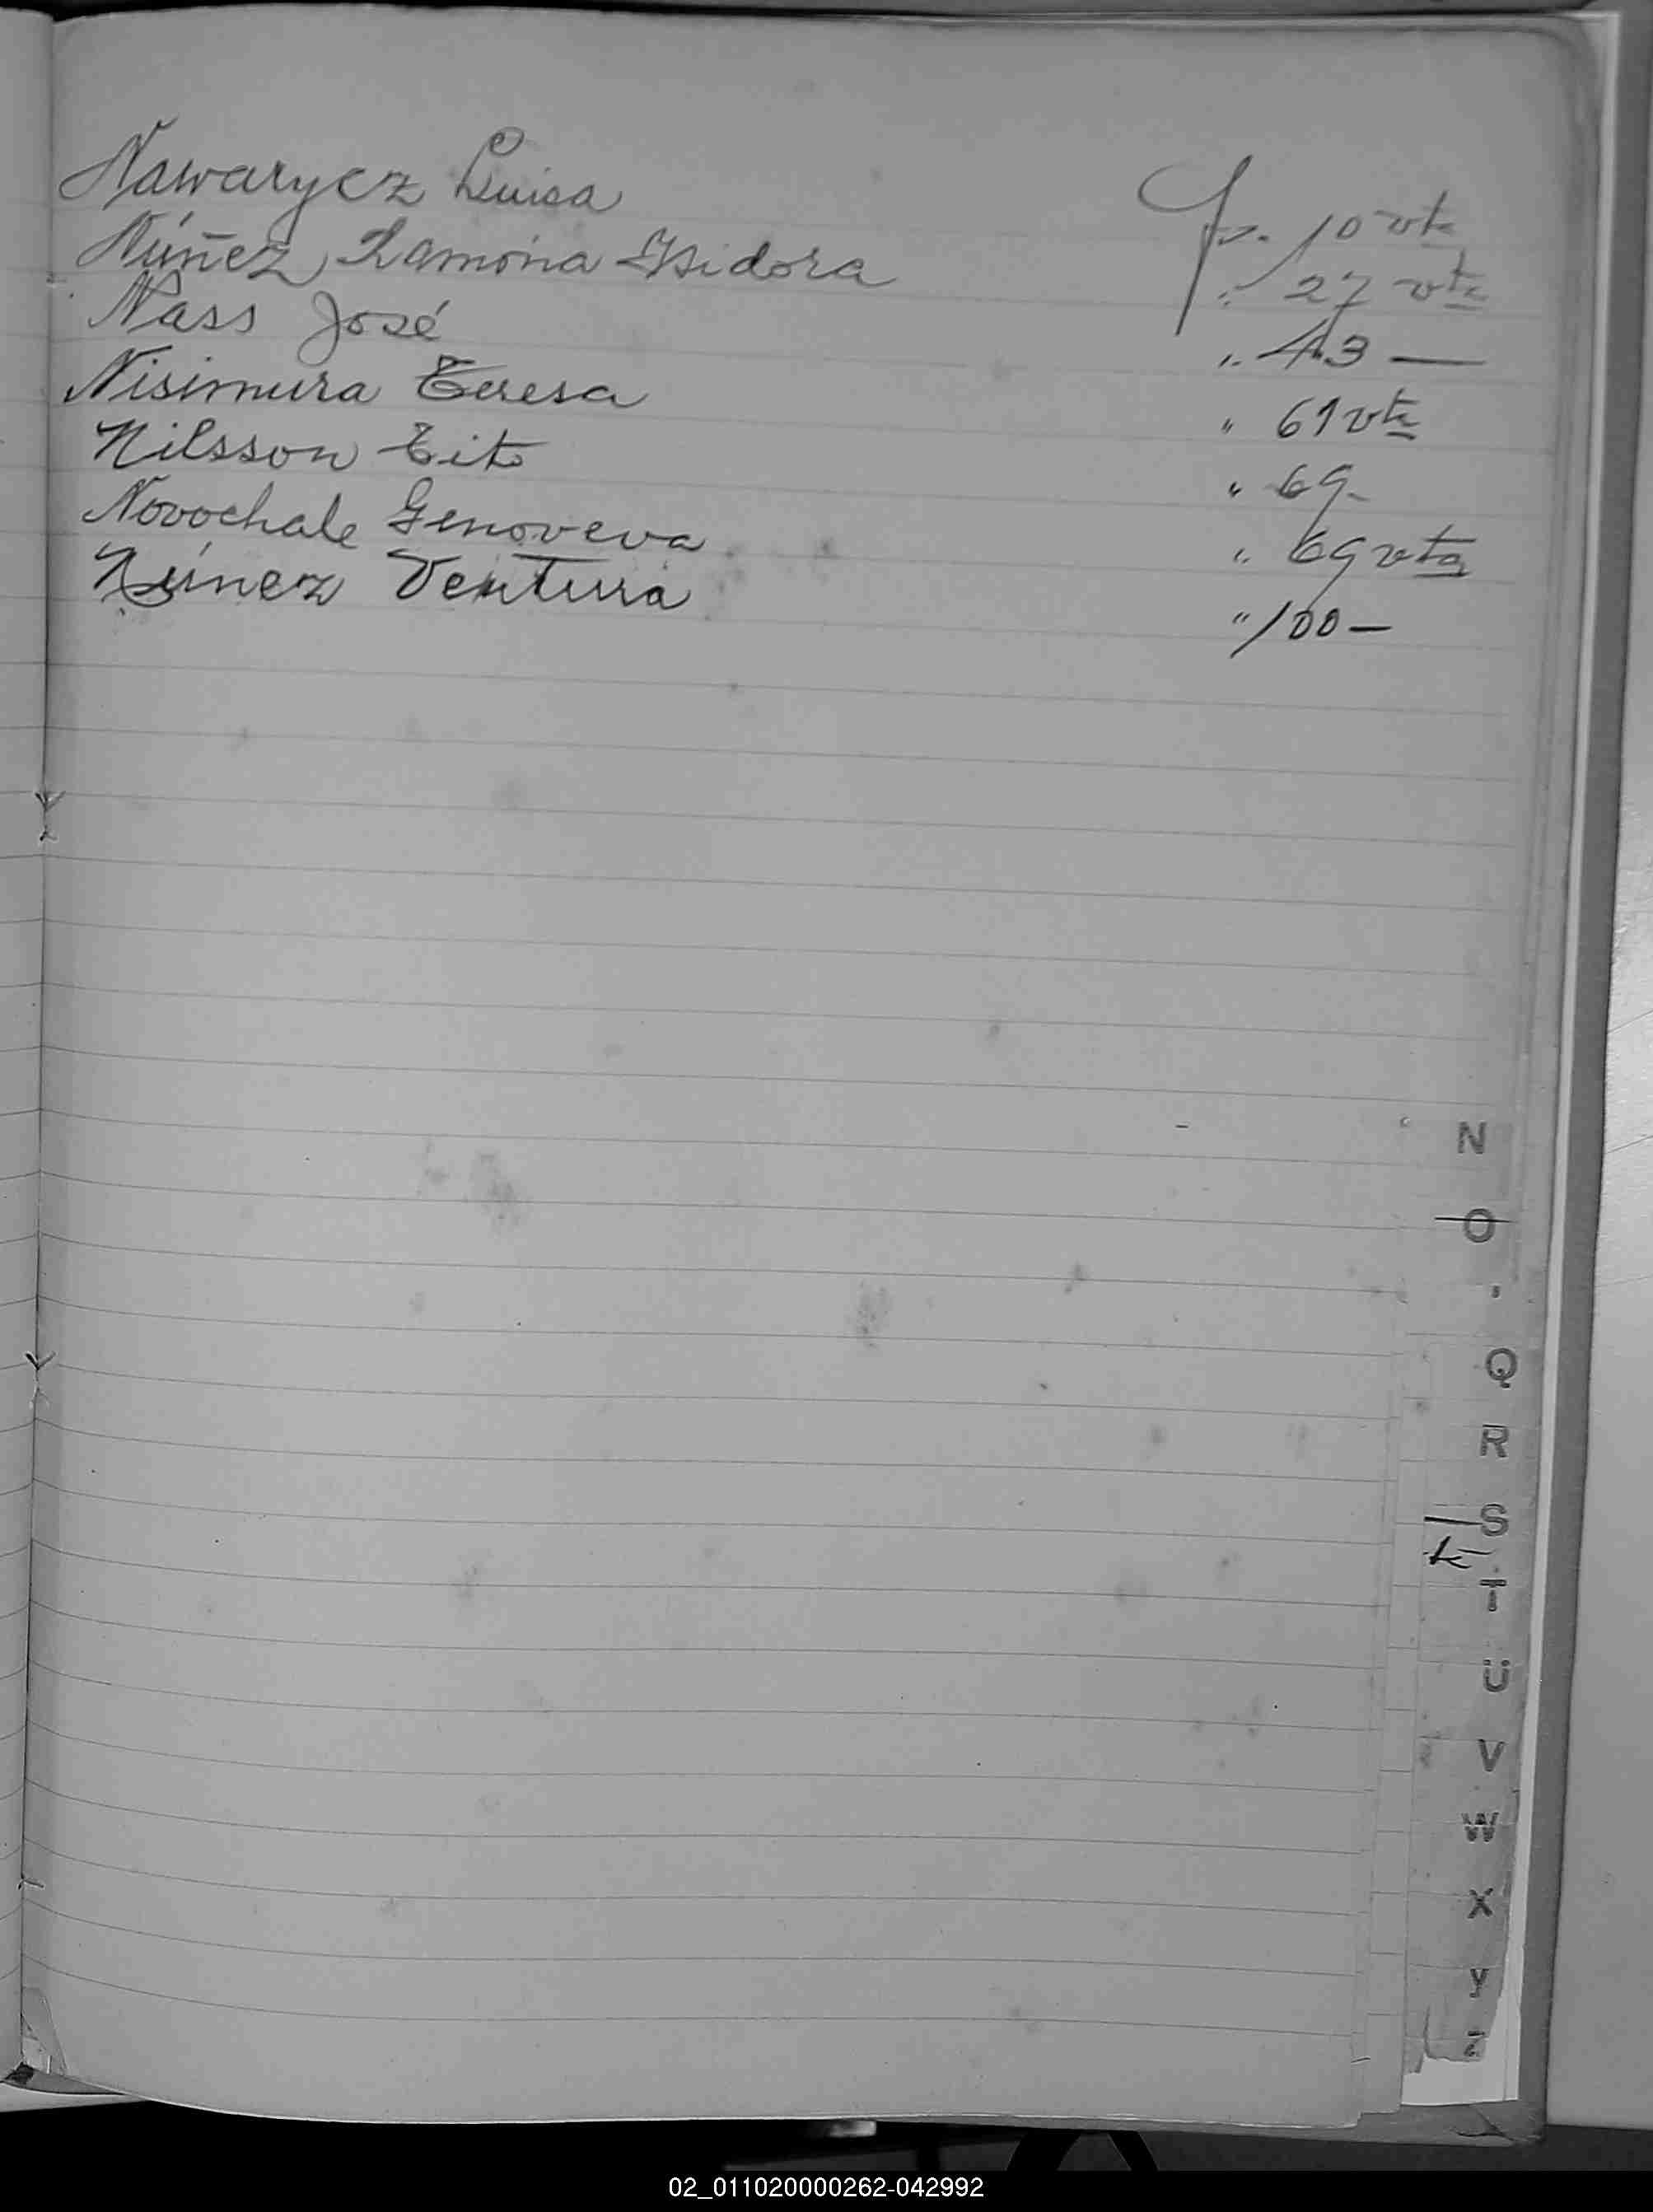 Nawarycz Luisa Fs. 10 vta
Núñez, Ramona Isidora " 27 vta
Nass José " 43 —
Nisimura Teresa " 61 vta
Nilsson Tito " 69 -
Novochale Genoveva " 69 vta
Núnez Ventura " 100 —
N
O
Q
R
S
T
U
V
W
X
Y
Z
02_011020000262-042992